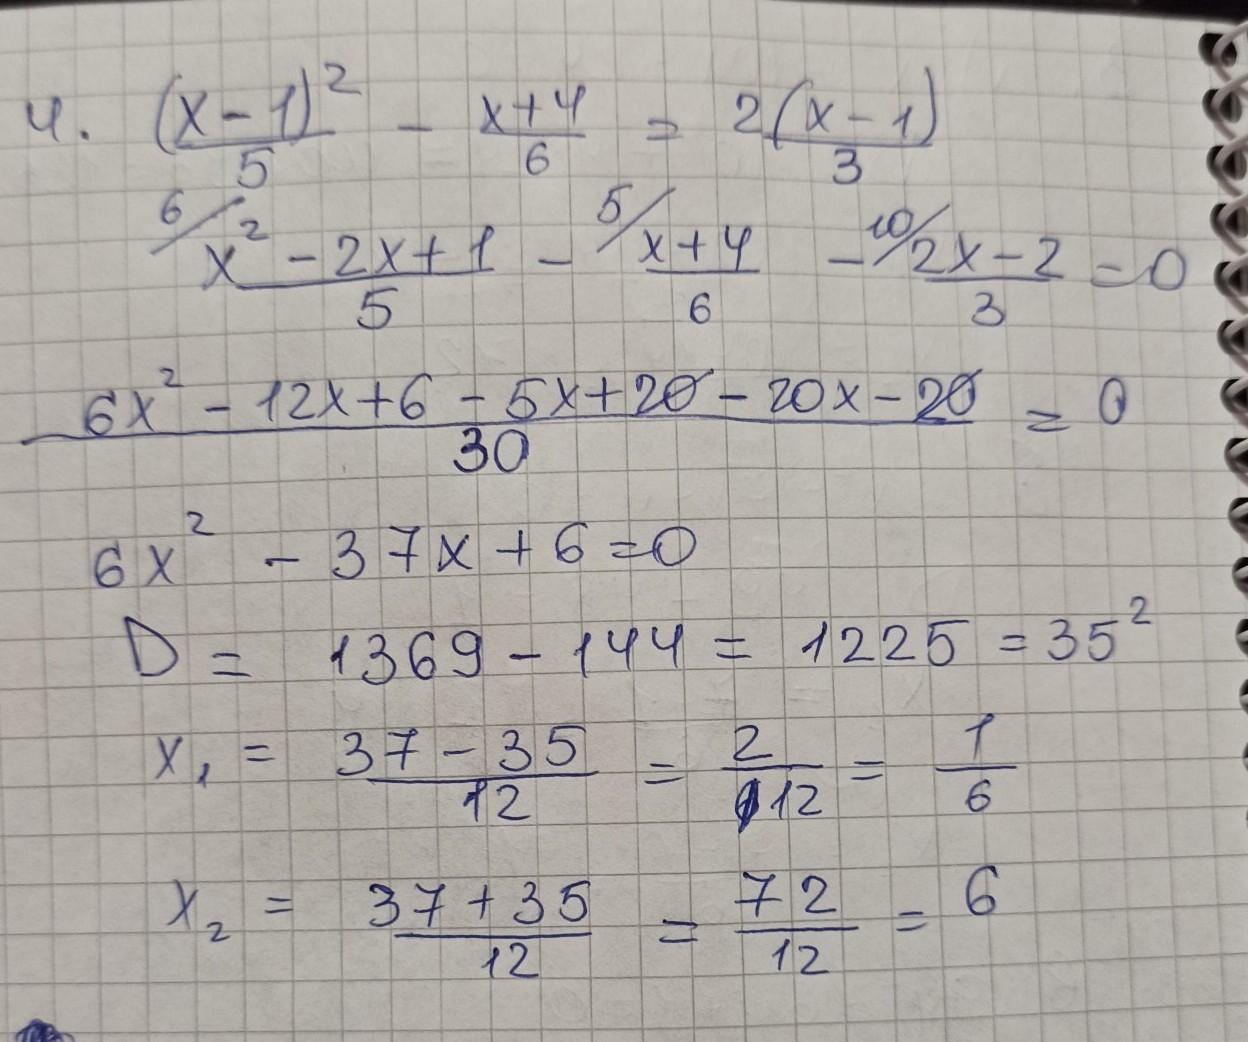 4. (x-1)²/5 - x+4/6 = 2(x-1)/3
6/ x²-2x+1/5 - 5/ x+4/6 - 10/ 2x-2/3 = 0
6x² - 12x+6 - 5x+20 - 20x-20/30 = 0
6x² - 37x+6=0
D = 1369 - 144 = 1225 = 35²
x₁ = 37-35/12 = 2/12 = 1/6
x₂ = 37+35/12 = 72/12 = 6